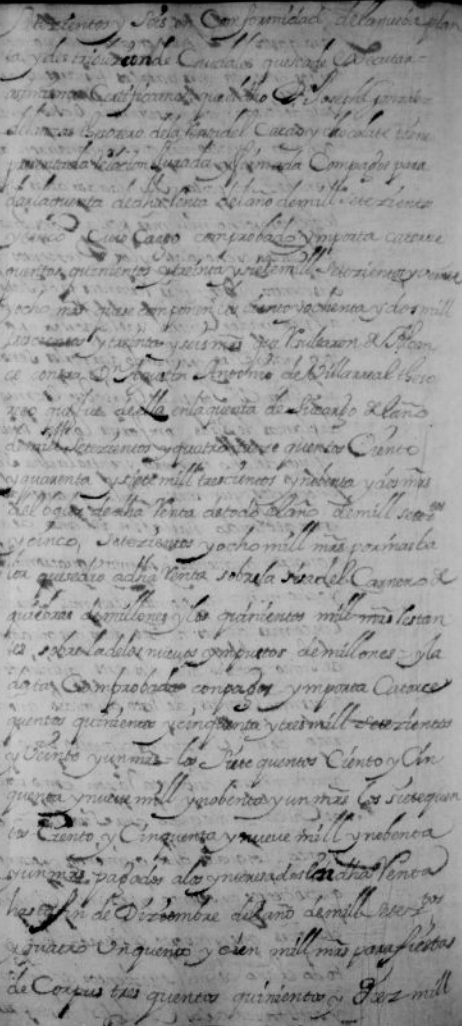 setezientos y seis en Conformidad de la nueva plan
ta y distribuzion de Caudales que se ha de executar
asimismo Certificamos que dho Dn Joseph
thesorero de la Renta del Cacao y chocolate tiene
presentada relacion Jurada y firmada Con pagos para
dar la quenta de dha Renta del año de mill setezientos
y cinco Cuio Cargo comprobado ymporta catorze
quentos quinientos y treinta y siete mill setezientos y veinte
y ocho mrs que se componen los ciento y ochenta y dos mill
trescientos y treinta y seis mrs que resultaron de Alcan
ce contra Dn Agustin Antolino de Villarreal theso
rero que fue de ella en la quenta de su cargo del año
de mill setezientos y quatro siete quentos Ciento
y quarenta y siete mill trescientos y nobenta y dos mrs
del valor de dha Renta de todo el año de mill setezos
y cinco, setezientos y ocho mill mrs por mas ba
lor que se dio a dha Renta sobre la sisa del Carnero de
quiebras de millones y los quinientos mill mrs restan
tes, sobre la de los nuevos ympuestos de millones = y la
data Comprobada con pagos ymporta Catorze
quentos quinientos y cinquenta y tres mill setezientos
y Veinte y un mrs = los Siete quentos Ciento y Cin
quenta y nueve mill y nobenta y un mrs los siete quen
tos Ciento y Cinquenta y nueve mill y nobenta
y un mrs pagados a los ynteresados en dha Renta
hasta fin de Diziembre del año de mill setezos
y quatro Un quento y cien mill mrs para fiestas
de Corpus tres quentos quinientos y Diez mill